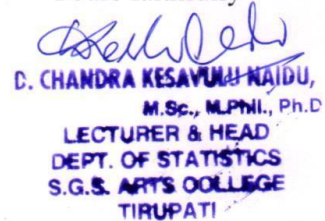 D. CHANDRA KESAVULU NAIDU,
M.Sc., M.Phil., Ph.D
LECTURER & HEAD
DEPT. OF STATISTICS
S.G.S. ARTS COLLEGE
TIRUPATI